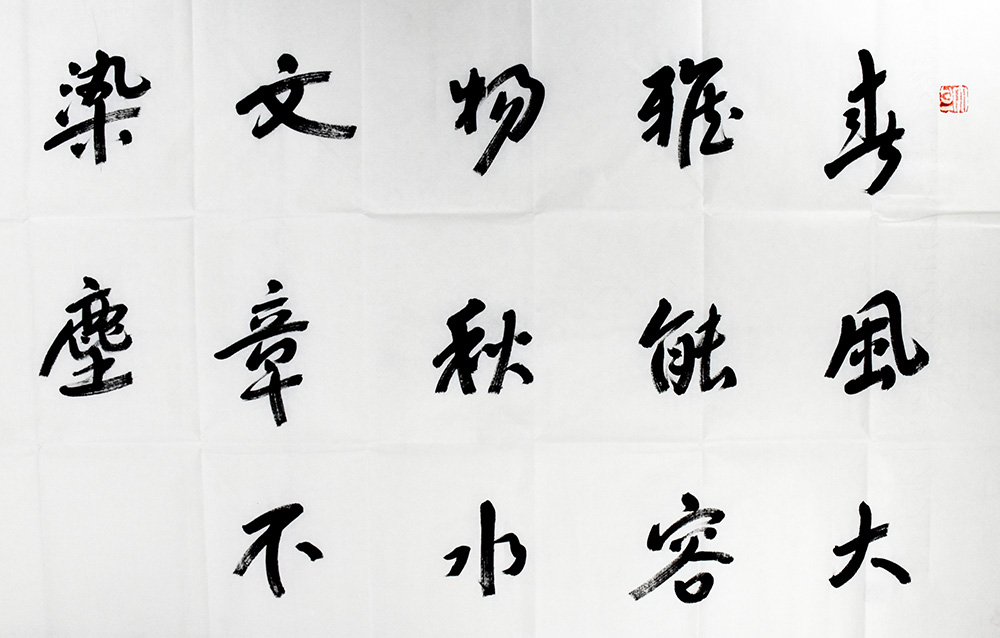 春風大
雅能容
物秋水
文章不
染塵